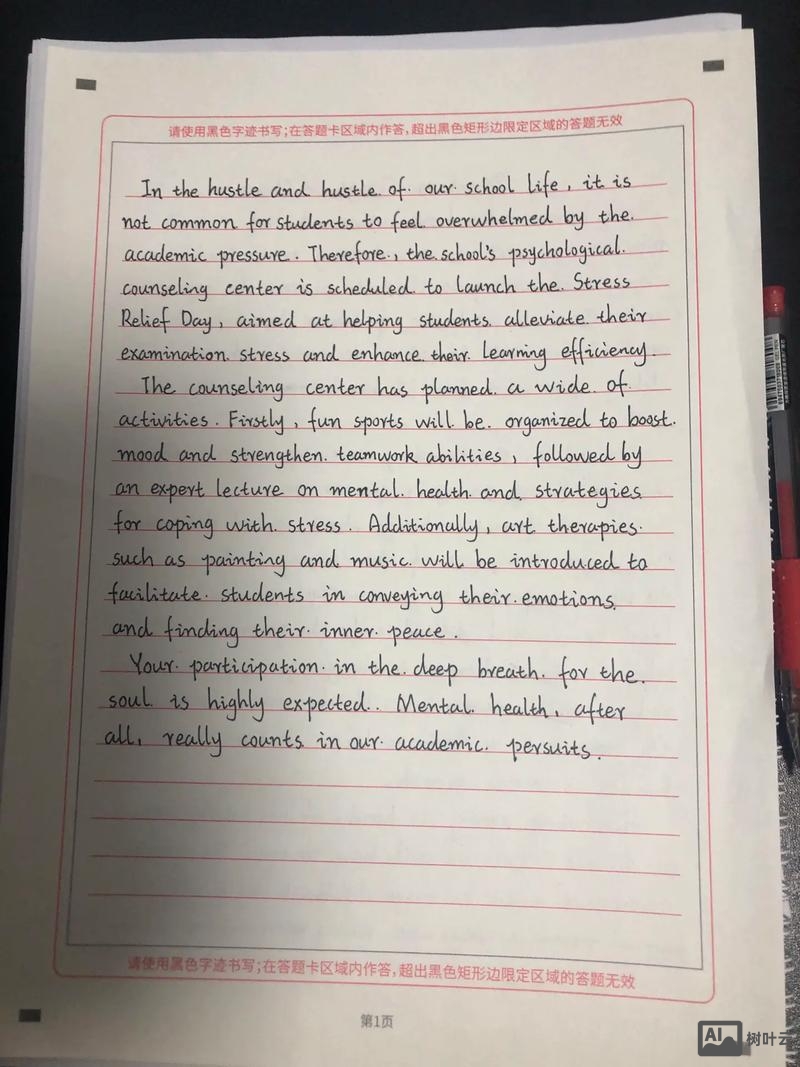 请使用黑色字迹书写;在答题卡区域内作答,超出黑色矩形边限定区域的答题无效
In the hustle and hustle of our school life, it is
not common for students to feel overwhelmed by the
academic pressure. Therefore, the school's psychological
counseling center is scheduled to launch the Stress
Relief Day, aimed at helping students alleviate their
examination stress and enhance their learning efficiency.
The counseling center has planned a wide of
activities. Firstly, fun sports will be organized to boost
mood and strengthen teamwork abilities, followed by
an expert lecture on mental health and strategies
for coping with stress. Additionally, art therapies
such as painting and music will be introduced to
facilitate students in conveying their emotions
and finding their inner peace.
Your participation in the deep breath for the
soul is highly expected. Mental health, after
all, really counts in our academic persuits.
请使用黑色字迹书写;在答题卡区域内作答,超出黑色矩形边限定区域的答题无效
第1页
AI 树叶云